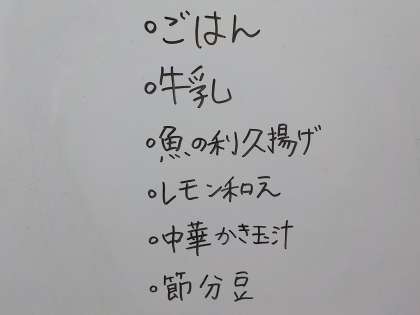 ・ごはん
・牛乳
・魚の利久揚げ
・レモン和え
・中華かき玉汁
・節分豆